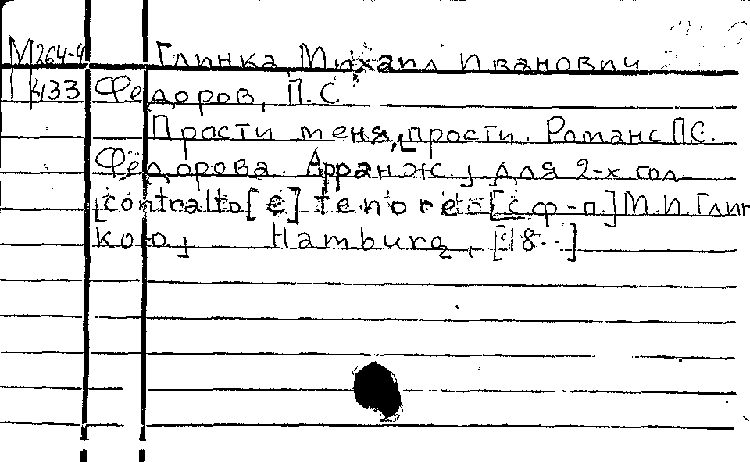 М 264-4 Глинка, Михаил Иванович
433 Федоров, П.С.
Прости меня, прости. Романс П.С.
Фёдорова. Арранж., для 2-х гол
[contralto [e] tenore [с ф-п.] М.И. Глин
кою, Hamburg, [18..]